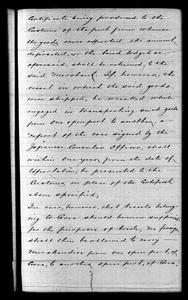 Certificate being produced to the
Customs of the port from whence
the goods were exported, the amount
deposited, or the bond lodged as
aforesaid, shall be returned to the
said Merchant. If however, the
vessel in which the said goods
were shipped, be wrecked whilst
engaged in transporting such goods
from one open port to another, a
report of the case signed by the
Japanese Consular Officer, shall
within one year, from the date of
exportation, be presented to the
Customs, in place of the Certificate
above specified.
In case, however, that Vessels belong-
ing to Corea should become sufficient
for the purposes of trade, no foreign
shall then be allowed to carry
Merchandise from one open port of
Corea to another open port, of Corea,